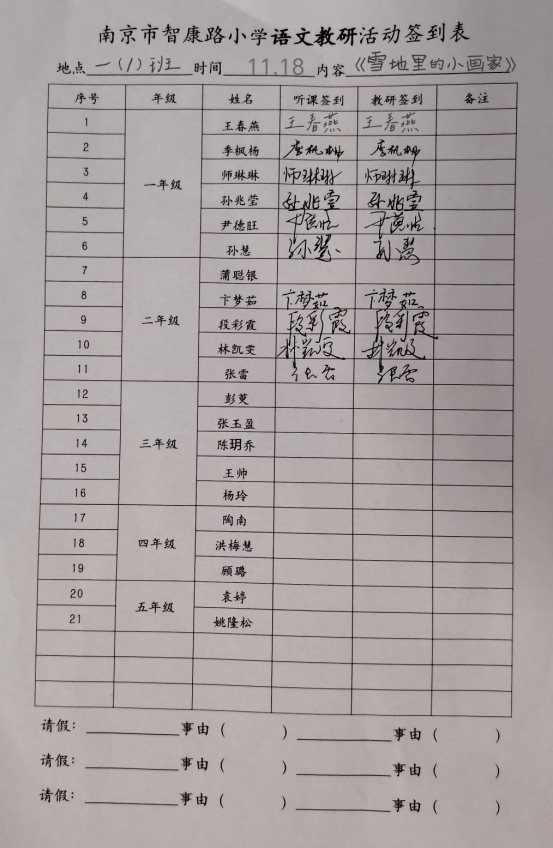 南京市智康路小学语文教研活动签到表
地点 一(1)班 时间 11.18 内容《雪地里的小画家》
序号 年级 姓名 听课签到 教研签到 备注
1 一年级 王春燕 王春燕 王春燕
2 季枫杨 季枫杨 季枫杨
3 师琳琳 师琳琳 师琳琳
4 孙兆莹 孙兆莹 孙兆莹
5 尹德旺 尹德旺 尹德旺
6 孙慧 孙慧 孙慧
7 二年级 蒲聪银
8 卞梦茹 卞梦茹 卞梦茹
9 段彩霞 段彩霞 段彩霞
10 林凯雯 林凯雯 林凯雯
11 张雷 张雷 张雷
12 三年级 彭萸
13 张玉盈
14 陈玥乔
15 王帅
16 杨玲
17 四年级 陶南
18 洪梅慧
19 顾璐
20 五年级 袁婷
21 姚隆松
请假: 事由( ) 事由( )
请假: 事由( ) 事由( )
请假: 事由( ) 事由( )